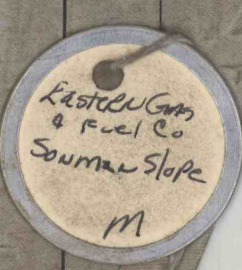 Eastern Gas
& Fuel Co
Sonman Slope
M